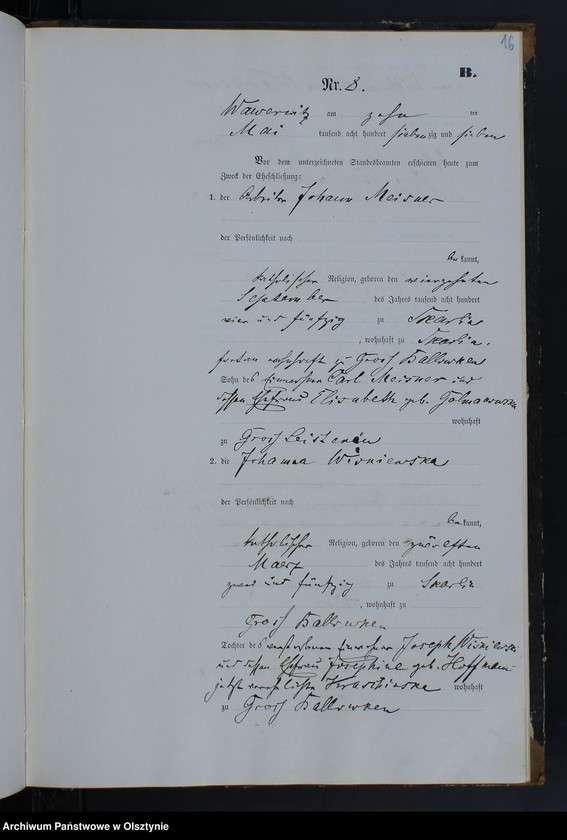 16
B.
Nr. 8.
Wawerwitz am zehn ten
Mai tausend acht hundert siebenzig und sieben
Vor dem unterzeichneten Standesbeamten erschienen heute zum
Zweck der Eheschließung:
1. der Arbeiter Johann Meisner
der Persönlichkeit nach
be kannt,
katholischer Religion, geboren den vierzehnten
September des Jahres tausend acht hundert
vier und fünfzig zu Skarlin
, wohnhaft zu Skarlin,
wohnhaft zu Gross Ballowken
Sohn des Einwohner Carl Meisner und
dessen Ehefrau Elisabeth geb.
wohnhaft
zu Gross Leistenau
2. die Johanna Wisniewska
der Persönlichkeit nach
be kannt,
katholischer Religion, geboren den zwölften
Maerz des Jahres tausend acht hundert
zwei und fünfzig zu Skarlin
, wohnhaft zu
Gross Ballowken
Tochter des verstorbenen Einwohner Joseph Wisniewski
und dessen Ehefrau Josephine geb. Hoffmann
jetzt verehelichte wohnhaft
zu Gross Ballowken
Archiwum Państwowe w Olsztynie